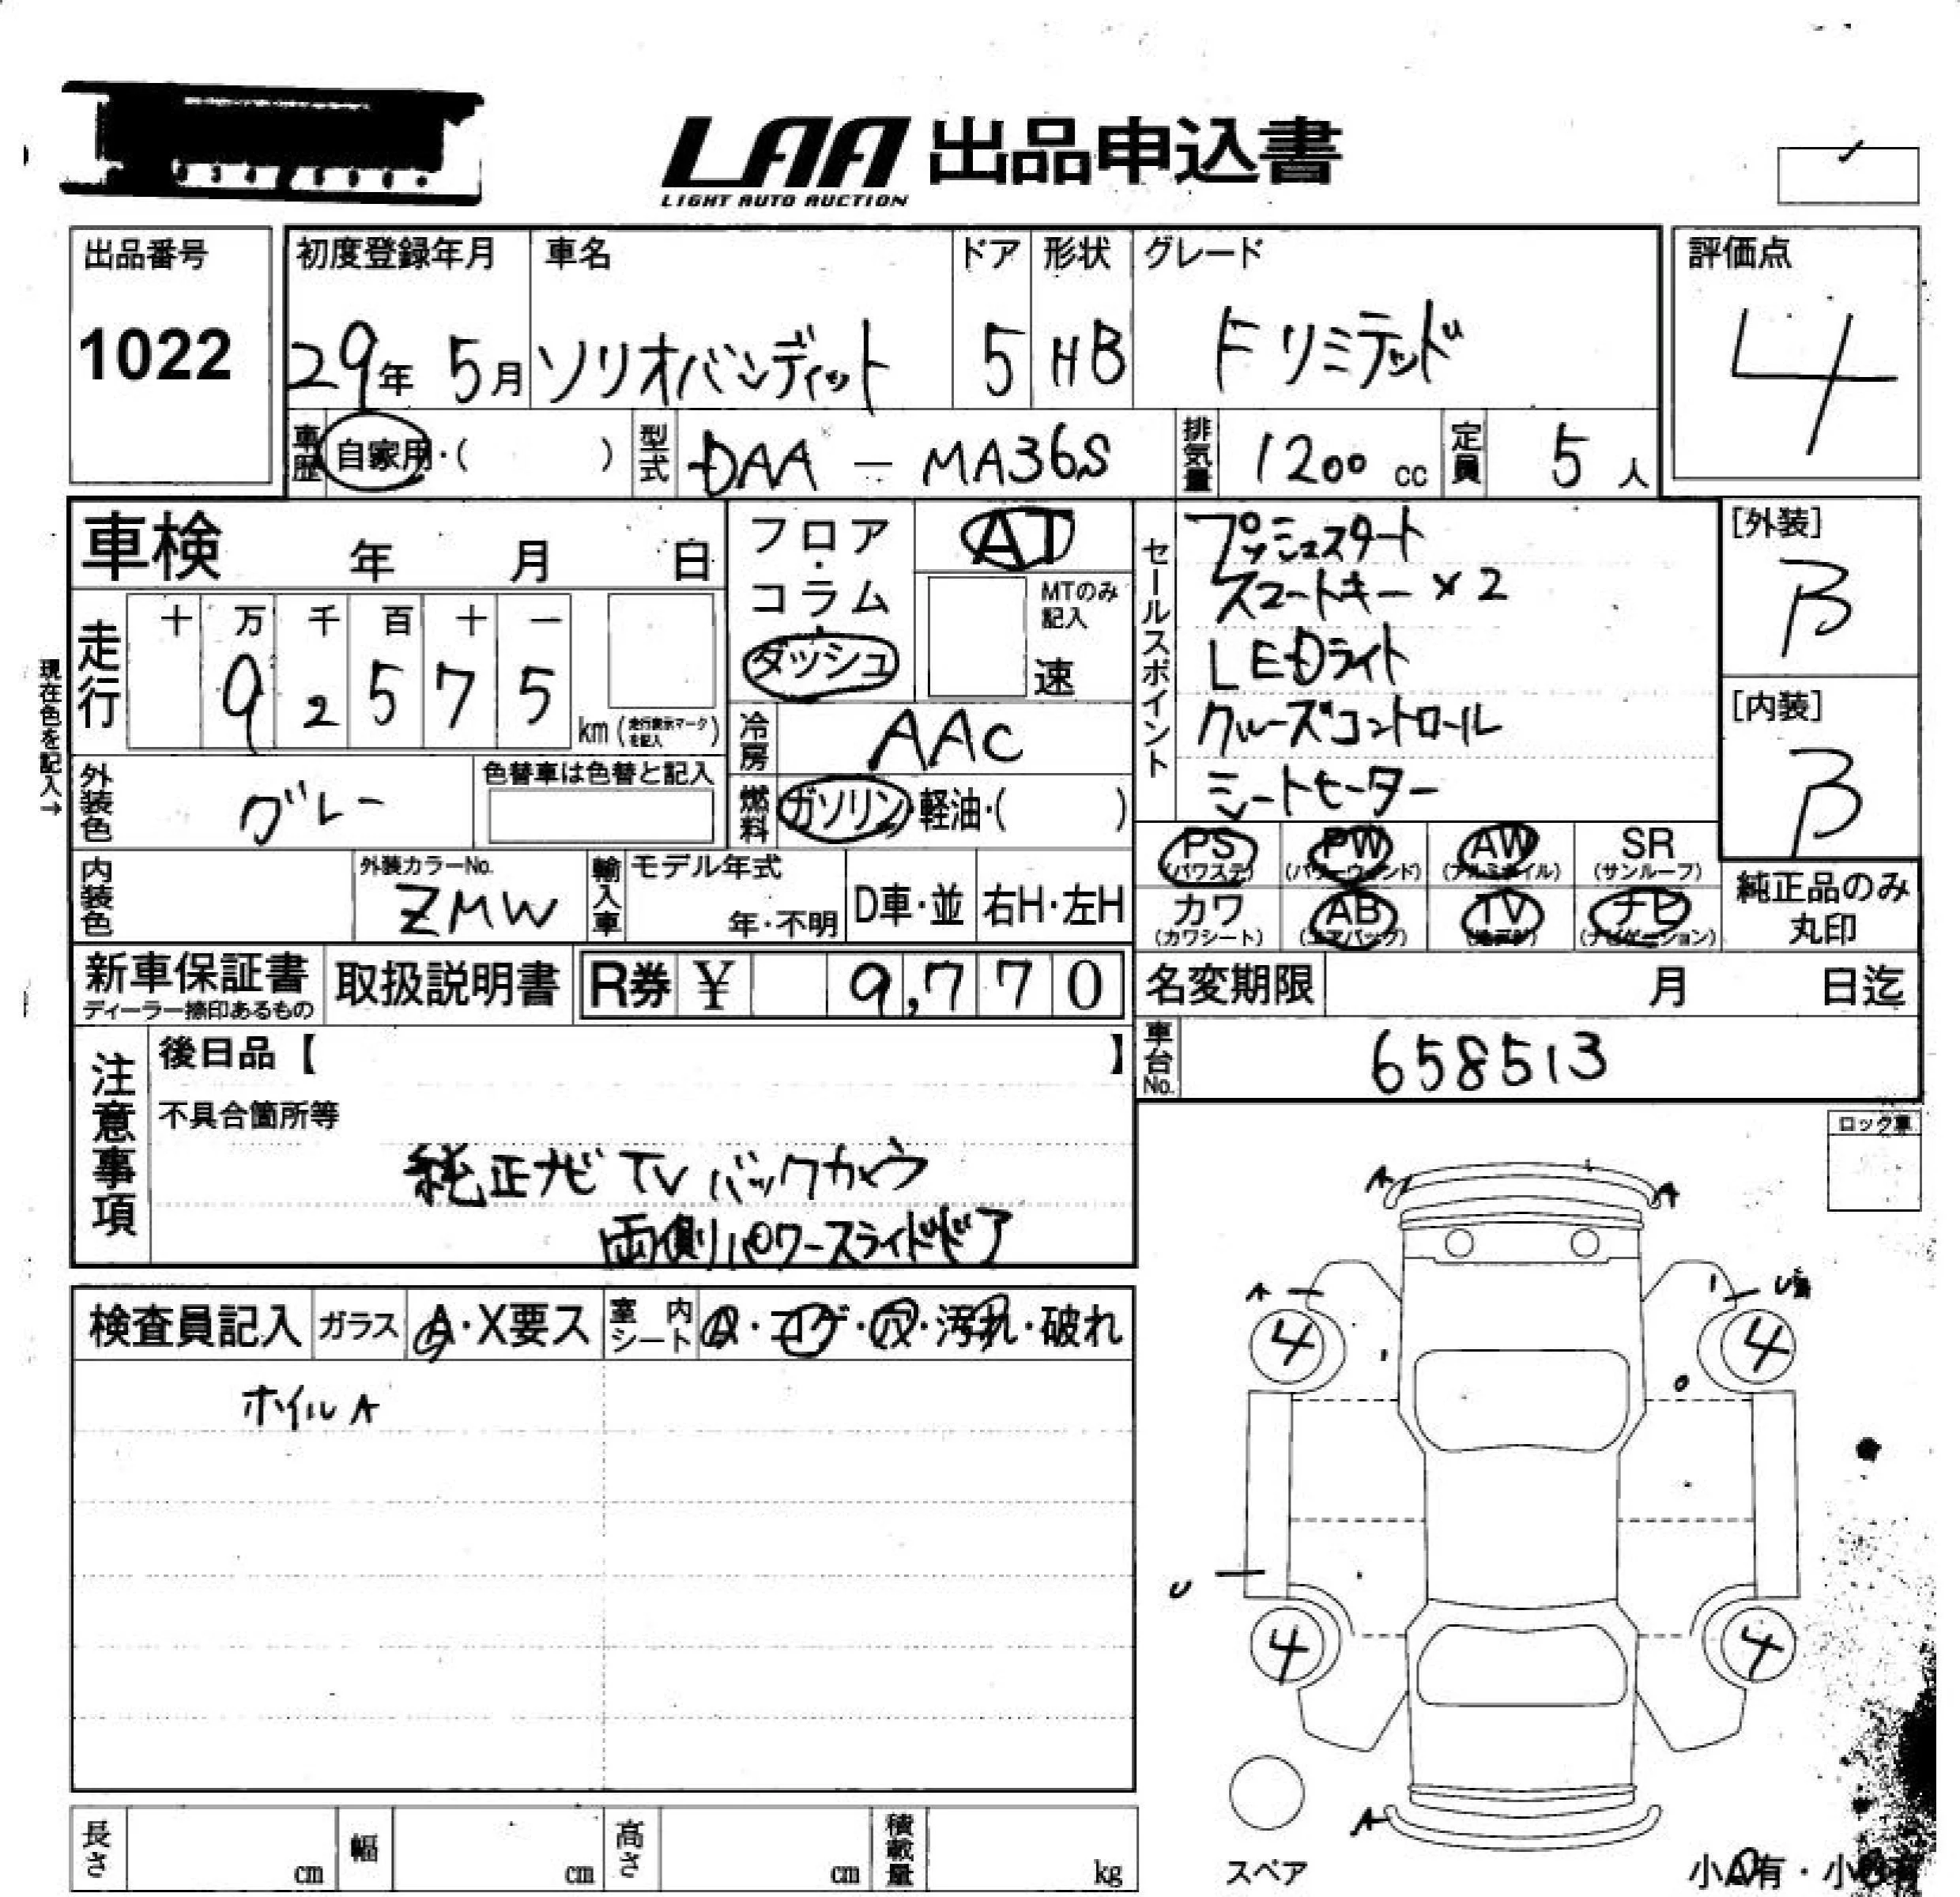 LAA 出品申込書
LIGHT AUTO AUCTION
出品番号
1022
初度登録年月 車名 ドア 形状 グレード
29年 5月 ソリオバンディット 5 HB Fリミテッド
評価点
4
車歴 自家用・( ) 型式 DAA - MA36S 排気量 1200 cc 定員 5 人
車検 年 月 日
フロア・コラム・ダッシュ
AT
MTのみ記入
速
セールスポイント
プッシュスタート
スマートキー×2
LEDライト
クルーズコントロール
シートヒーター
[外装]
B
[内装]
B
現在色を記入→
走行 十 万 千 百 十 一
9 2 5 7 5 km (走行表示マークを記入)
冷房 AAC
外装色 グレー 色替車は色替と記入
燃料 ガソリン・軽油・( )
PS (パワステ) PW (パワーウィンド) AW (アルミホイル) SR (サンルーフ)
カワ (カワシート) AB (エアバック) TV ナビ (ナビゲーション)
純正品のみ
丸印
内装色 外装カラーNo. ZMW 輸入車 モデル年式 年・不明 D車・並 右H・左H
新車保証書 取扱説明書 R券 ¥ 9,770
ディーラー捺印あるもの
名変期限 月 日迄
車台No. 658513
注意事項
後日品【 】
不具合箇所等
純正ナビ TV バックカメラ
両側パワースライドドア
ロック車
検査員記入 ガラス A・X要ス 室内シート A・コゲ・穴・汚れ・破れ
ホイル A
A A
A
4 4
U
4 4
A
スペア
小A有・小B有
長さ cm 幅 cm 高さ cm 積載量 kg